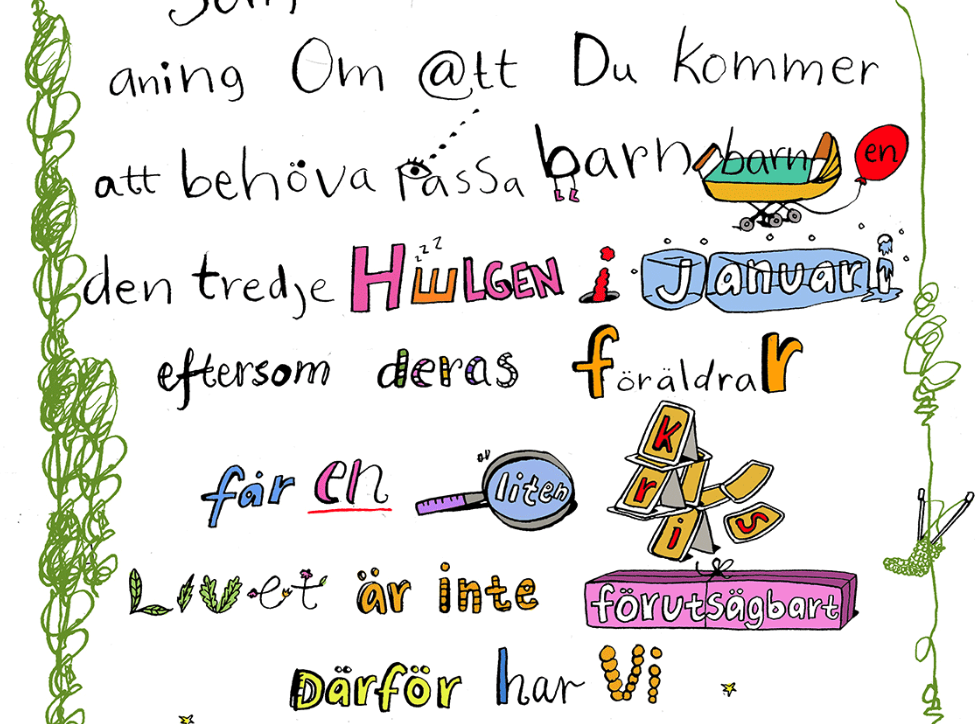 aning Om @tt Du kommer
att behöva passa barnbarnen
den tredje HELGEN i januari
eftersom deras föräldrar
får en liten kris
Livet är inte förutsägbart
Därför har Vi